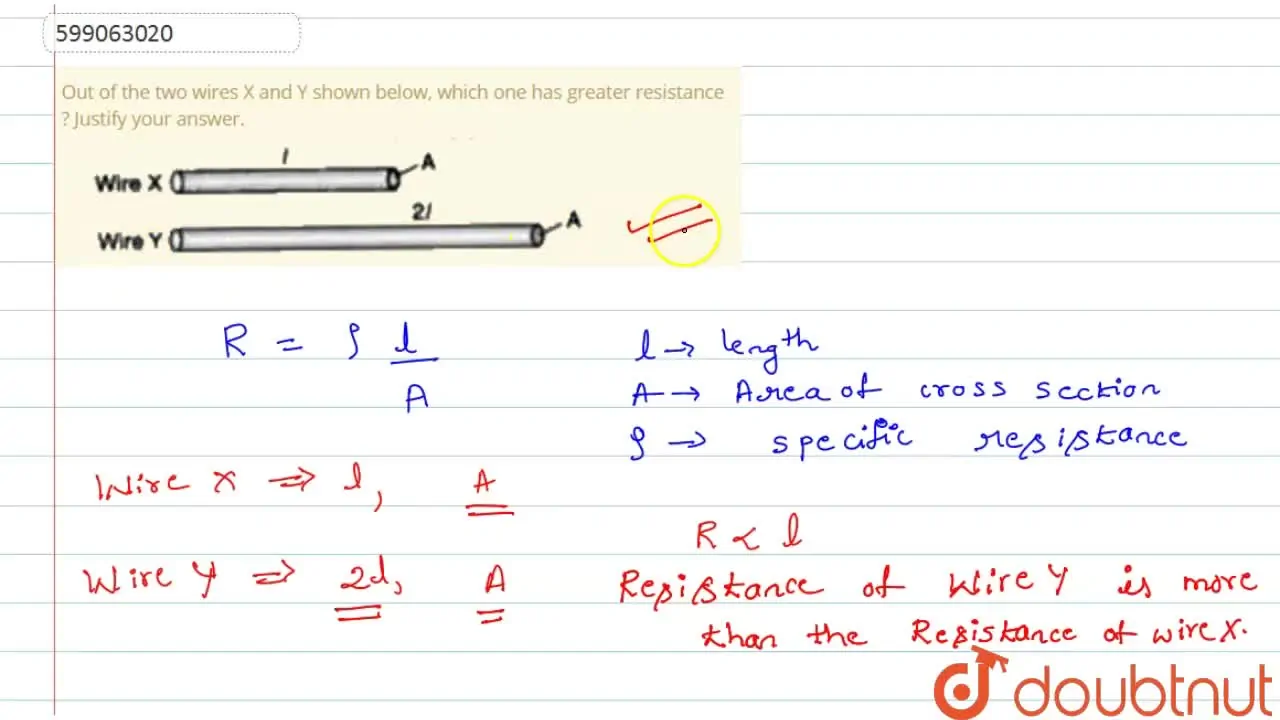 599063020
Out of the two wires X and Y shown below, which one has greater resistance
? Justify your answer.
l
A
Wire X
2l
A
Wire Y
R = ρ l
A
l → length
A → Area of cross section
ρ → specific resistance
Wire X ⇒ l, A
Wire Y ⇒ 2l, A
R ∝ l
Resistance of Wire Y is more
than the Resistance of wire X.
doubtnut